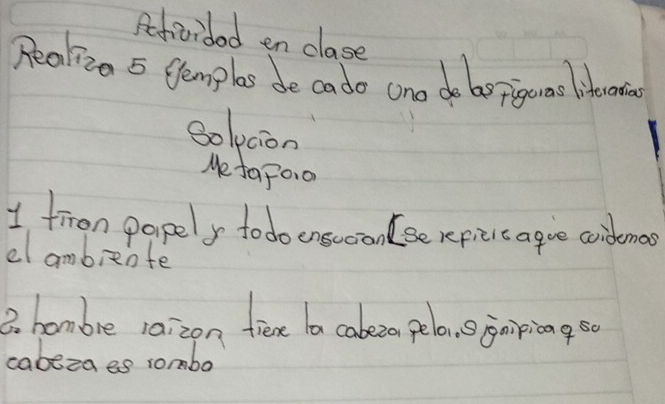 Actividad en clase
Realiza 5 ejemplos de cada una de las figuras literarias
Solución
Metafora
1 tiran papel y todo ensucian (se refiere a que cuidemos
el ambiente
2. hombre raizon tiene la cabeza pela. significa q su
cabeza es rombo